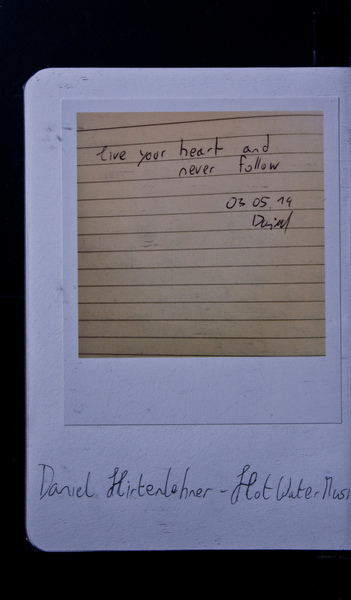 live your heart and
never follow
03.05.14
Daniel
Daniel Hirtenlehner - Hot Water Musi